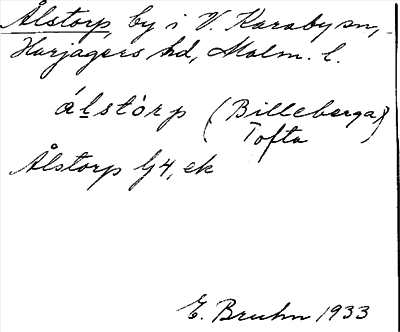 Ålstorp, by i V. Karaby sn,
Harjagers hd, Malm. l.
álstòrp (Billeberga)
Tofta
Ålstorp G4, ek
E. Bruhn 1933